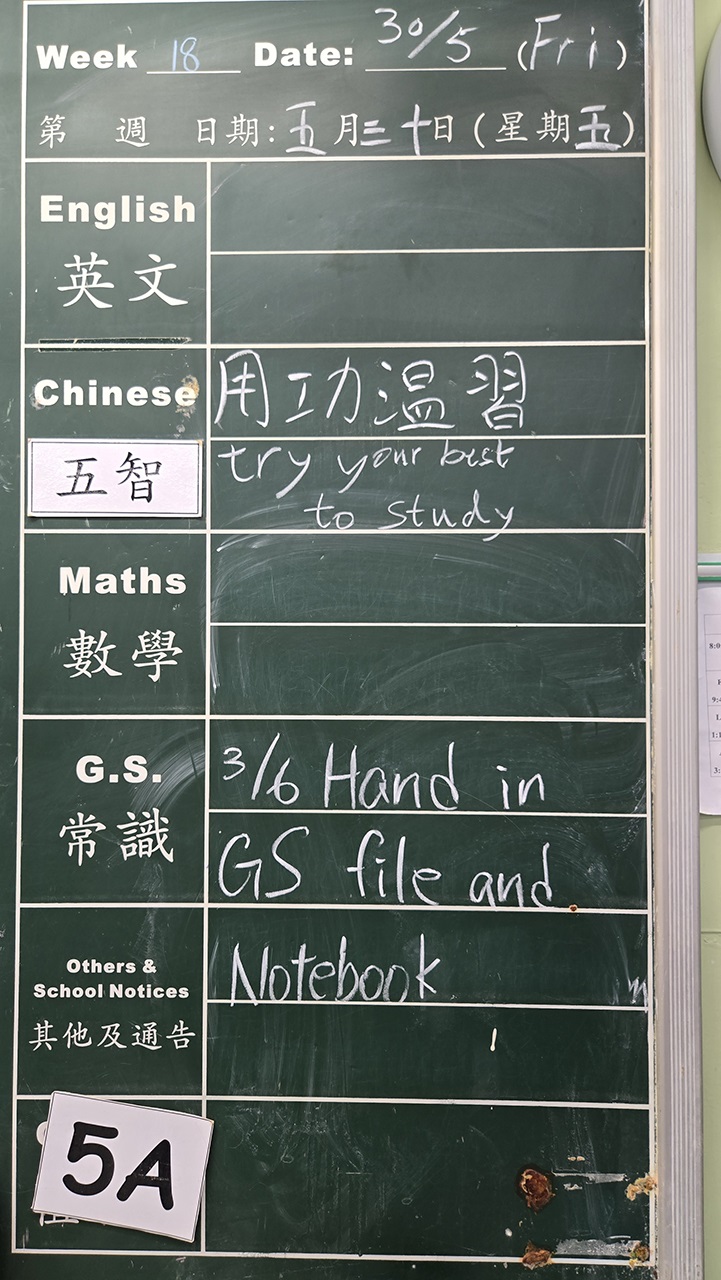 Week 18 Date: 30/5 (Fri)
第 週 日期: 五月三十日 (星期五)
English
英文
Chinese 用功温習
五智 try your best
to study
Maths
數學
G.S. 3/6 Hand in
常識 GS file and
Others & Notebook
School Notices
其他及通告
5A
8:0
9:4
1:1
3: